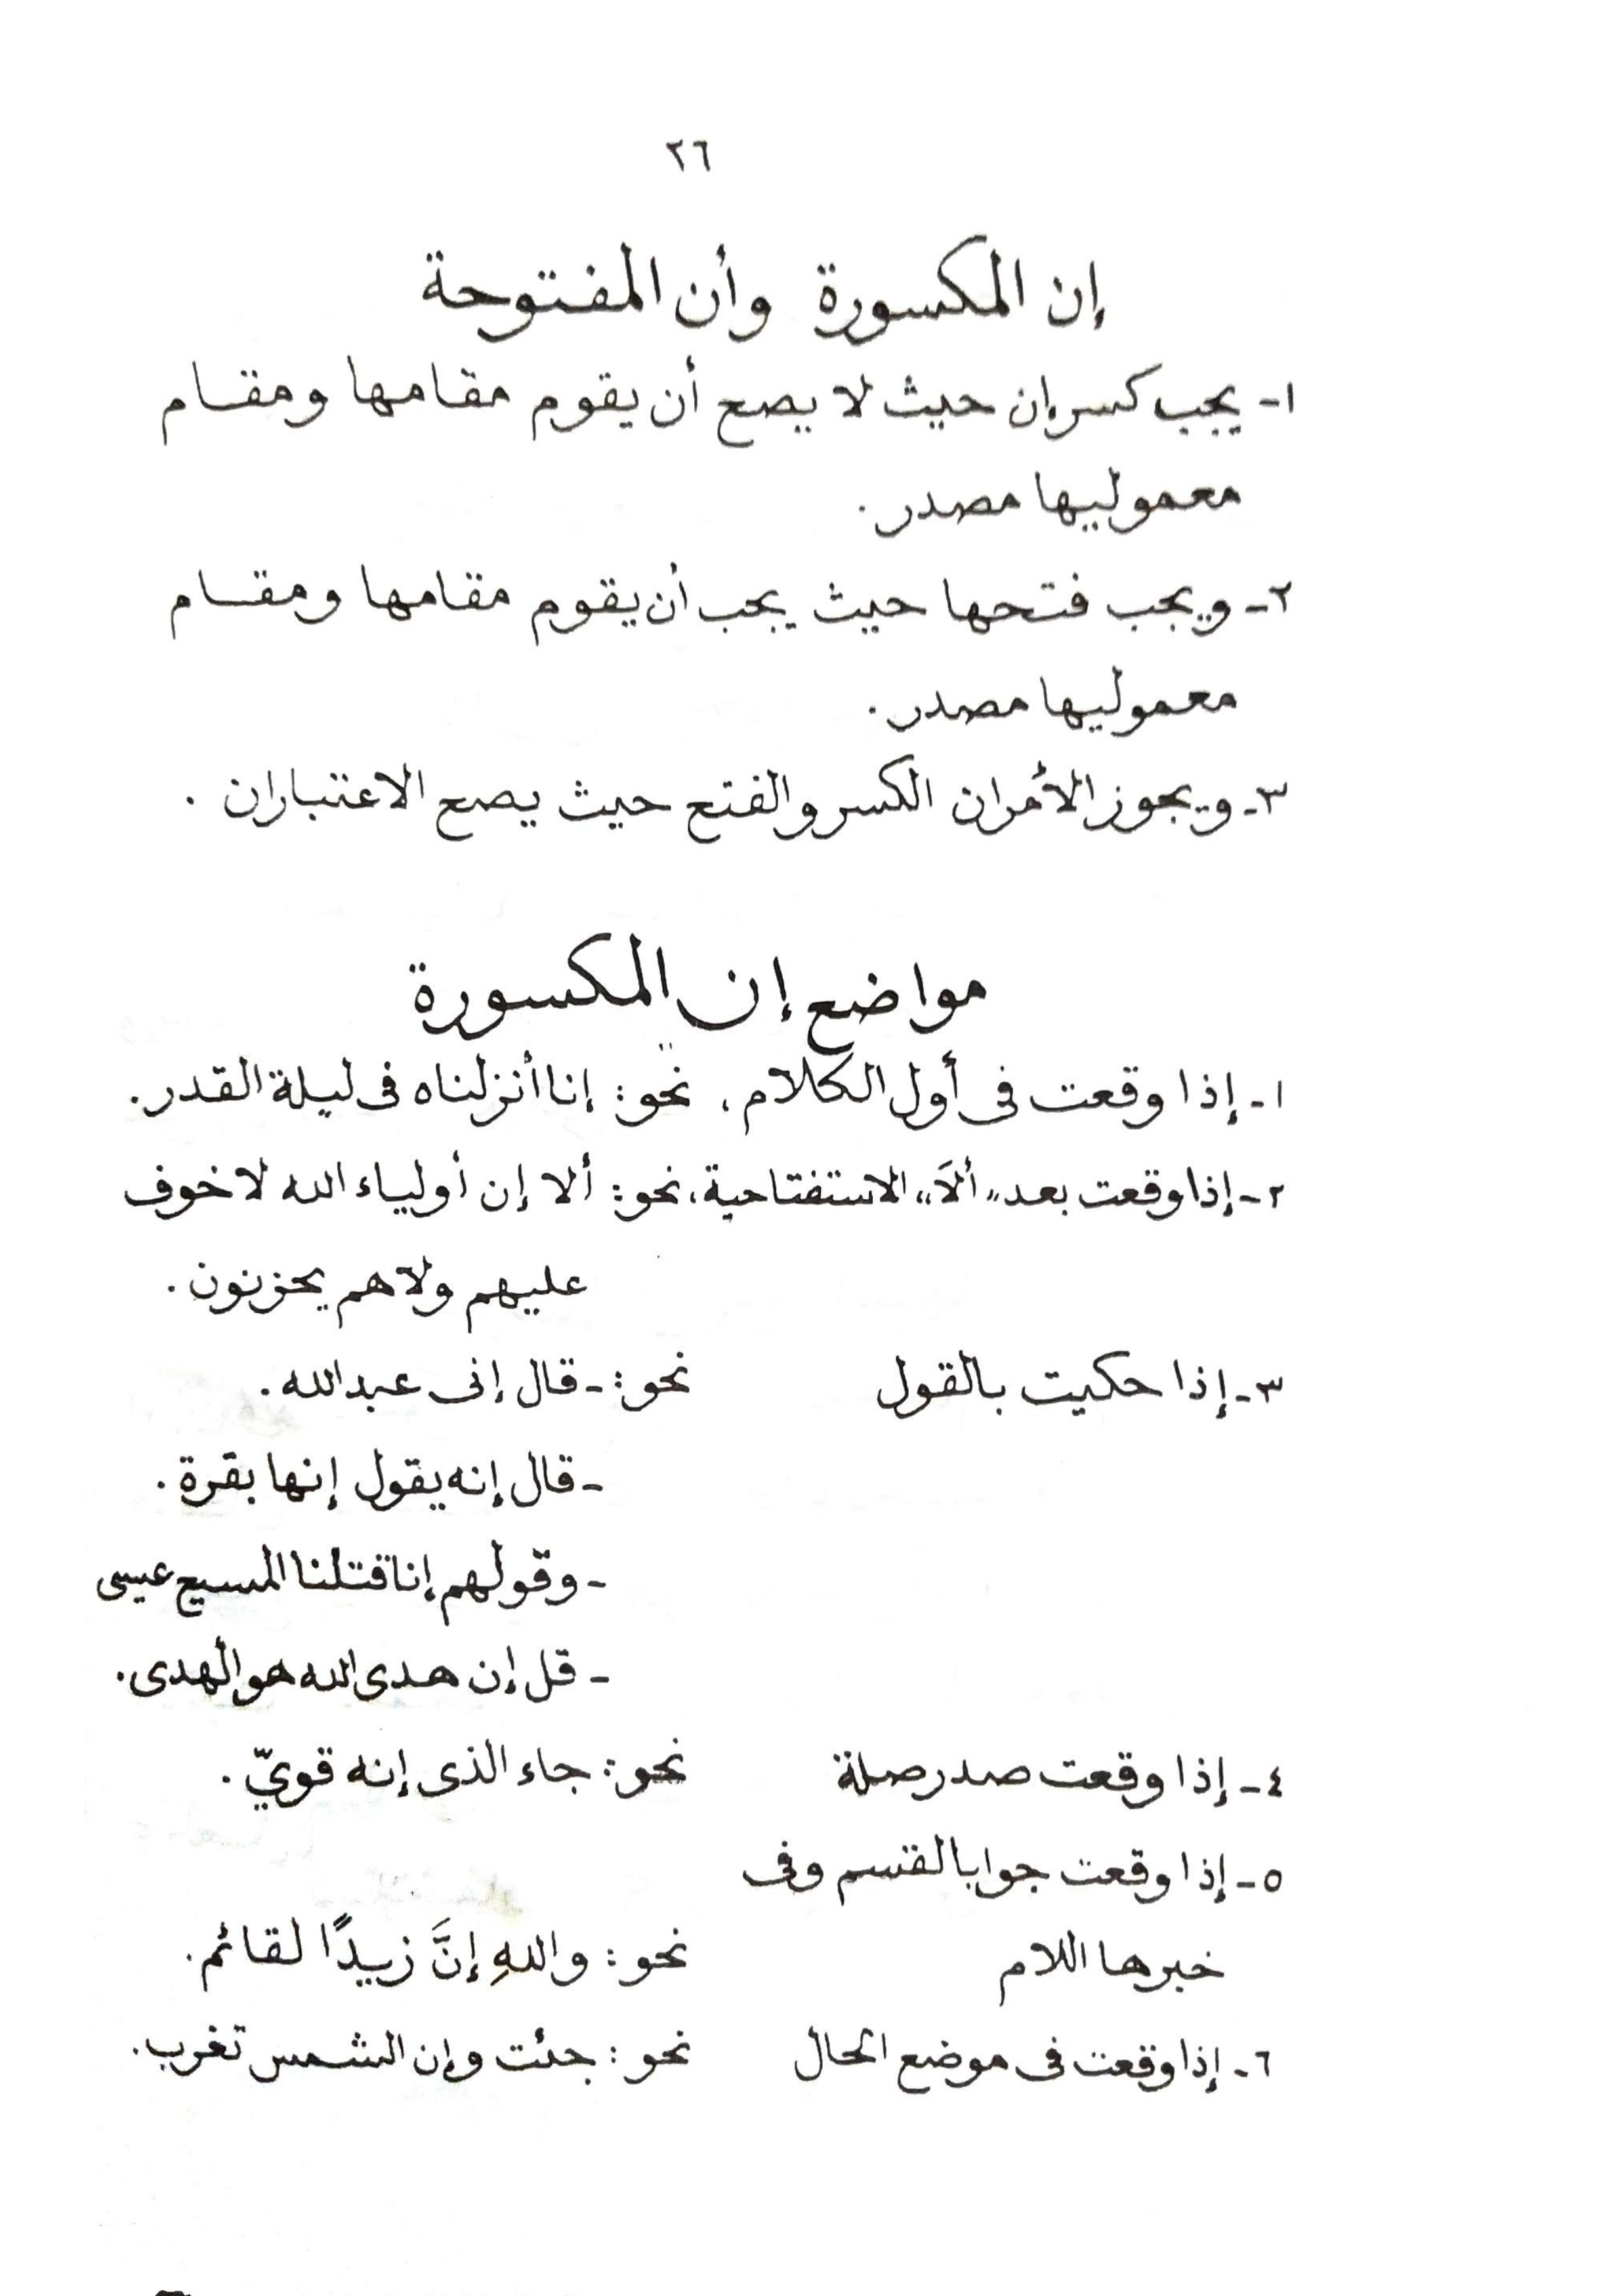 ٢٦
إن المكسورة وأن المفتوحة
١- يجب كسر إن حيث لا يصح أن يقوم مقامها ومقام
معموليها مصدر.
٢- ويجب فتحها حيث يجب أن يقوم مقامها ومقام
معموليها مصدر.
٣- ويجوز الأمران الكسر والفتح حيث يصح الاعتباران.
مواضع إن المكسورة
١- إذا وقعت فى أول الكلام، نحو: إنا أنزلناه فى ليلة القدر.
٢- إذا وقعت بعد "ألاَ" الاستفتاحية، نحو: ألا إن أولياء الله لا خوف
عليهم ولا هم يحزنون.
٣- إذا حكيت بالقول نحو: - قال إنى عبد الله.
- قال إنه يقول إنها بقرة.
- وقولهم إنا قتلنا المسيح عيسى
- قل إن هدى الله هو الهدى.
٤- إذا وقعت صدر صلة نحو: جاء الذى إنه قويّ.
٥- إذا وقعت جوابا لقسم وفى
خبرها اللام نحو: واللهِ إنَّ زيدًا لقائم.
٦- إذا وقعت فى موضع الحال نحو: جئت وإن الشمس تغرب.